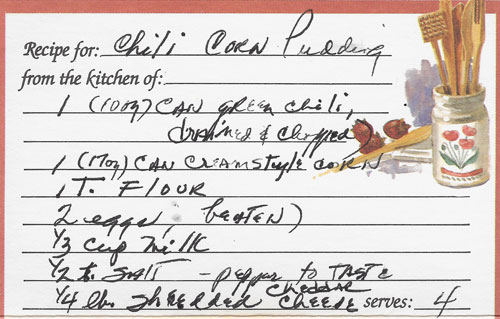 Recipe for: Chili Corn Pudding
from the kitchen of:
1 (10oz) CAN green chili,
drained & chopped
1 (17oz) CAN CREAMstyle CORN
1 T. FLOUR
2 eggs, beaten)
1/3 cup milk
1/2 t. SALT - pepper to TASTE
1/4 lb. Shredded cheddar Cheese serves: 4